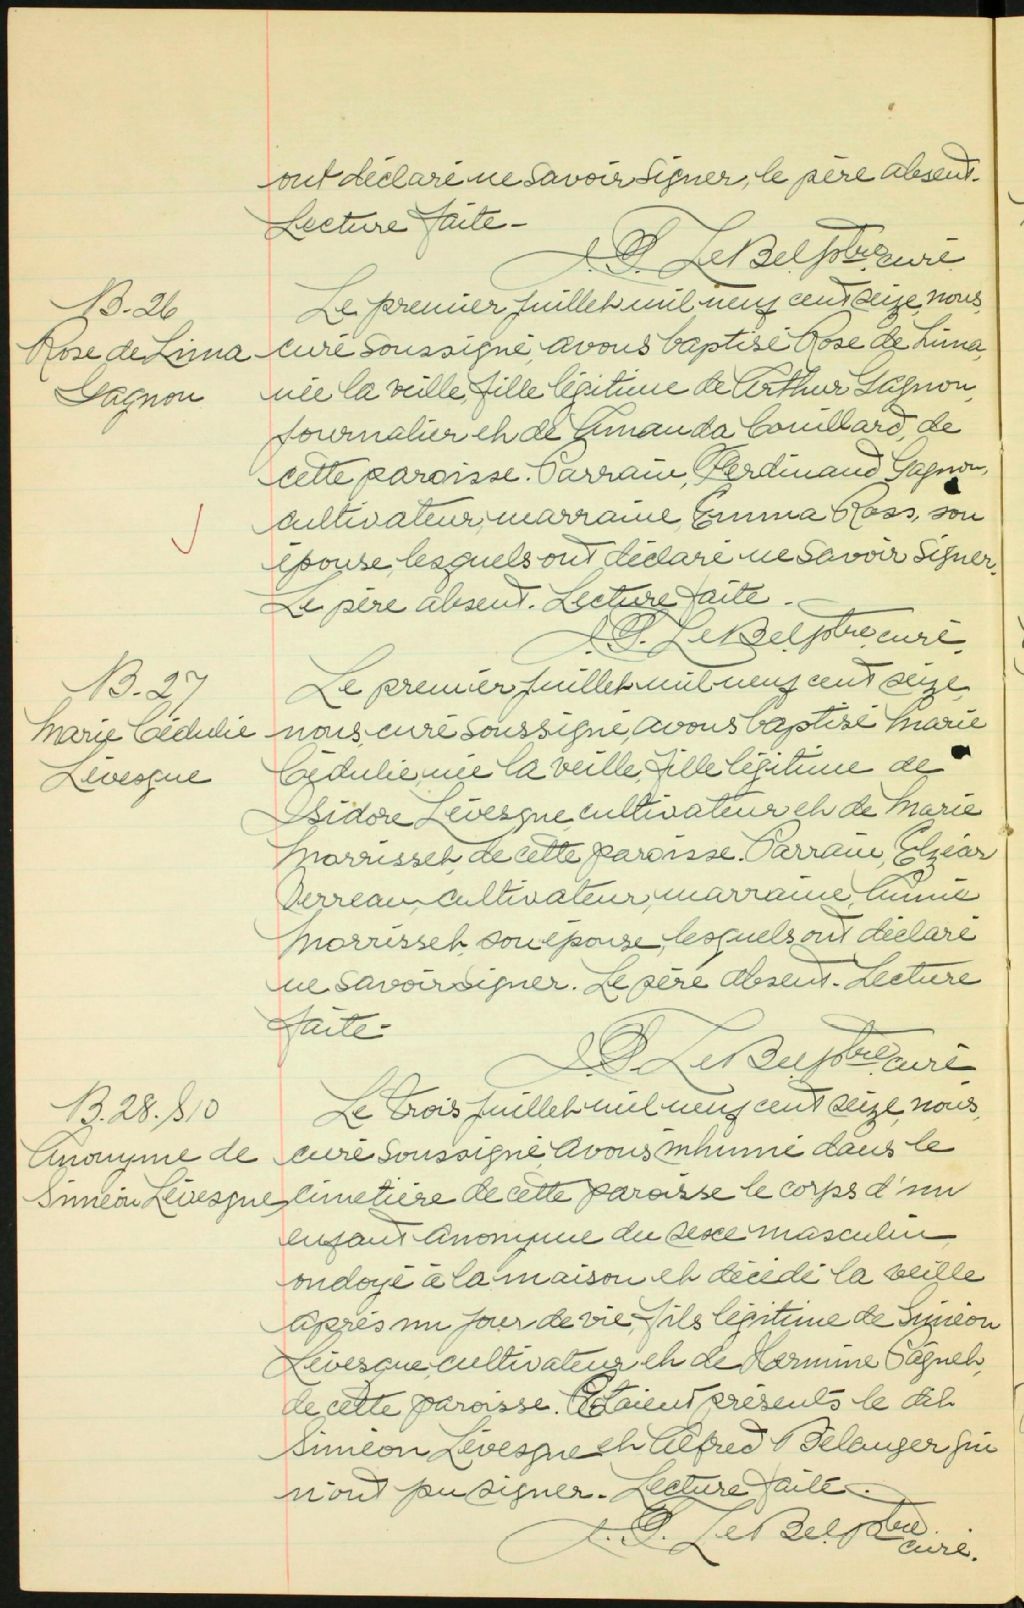 ont déclaré ne savoir signer, le père absent.
Lecture faite -
J. D. LeBel ptre curé
B-26
Rose de Lima
Gagnon
Le premier juillet mil neuf cent seize, nous,
curé soussigné, avons baptisé Rose de Lima,
née la veille, fille légitime de Arthur Gagnon,
journalier et de Amanda Couillard, de
cette paroisse. Parrain, Ferdinand Gagnon,
cultivateur, marraine, Emma Ross, son
épouse, lesquels ont déclaré ne savoir signer.
Le père absent. Lecture faite -
J. D. LeBel ptre curé.
B-27
Marie Cédulie
Lévesque
Le premier juillet mil neuf cent seize,
nous, curé soussigné, avons baptisé Marie
Cédulie, née la veille, fille légitime de
Isidore Lévesque, cultivateur et de Marie
Morrisset, de cette paroisse. Parrain, Elzéar
Verreau, cultivateur, marraine,
Morrisset, son épouse, lesquels ont déclaré
ne savoir signer. Le père absent. Lecture
faite -
J. D. LeBel ptre curé
B.28. S 10
Anonyme de
Siméon Lévesque
Le trois juillet mil neuf cent seize, nous,
curé soussigné, avons inhumé dans le
cimetière de cette paroisse le corps d'un
enfant anonyme du sexe masculin,
ondoyé à la maison et décédé la veille
après un jour de vie, fils légitime de Siméon
Lévesque, cultivateur et de Hermine Paquet,
de cette paroisse. Etaient présents le dit
Siméon Lévesque et Alfred Bélanger qui
n'ont pu signer. Lecture faite -
J. D. LeBel ptre
curé.